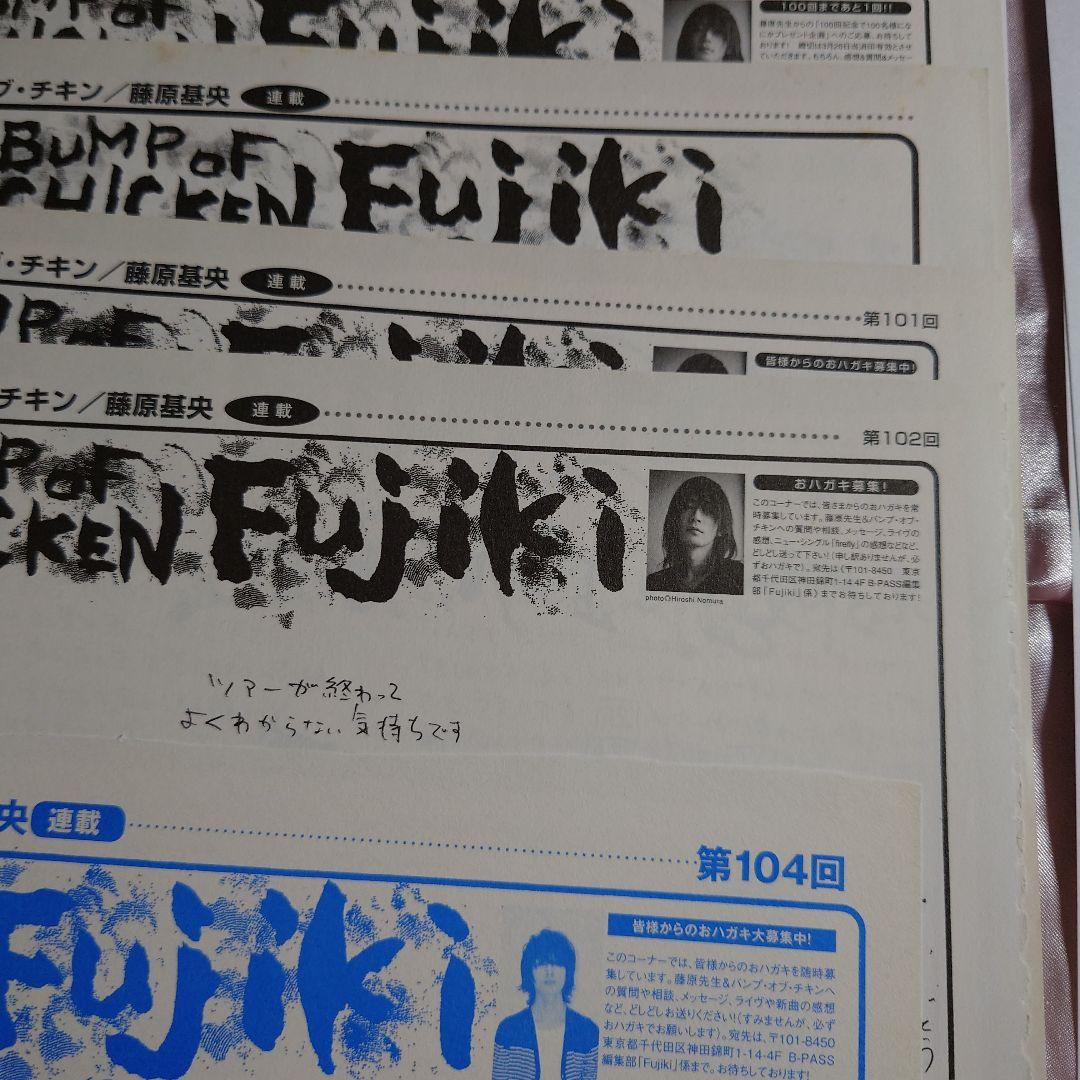 100回まであと1回!!
藤原先生からの「100回記念で100名様になにかプレゼント企画」へのご応募、お待ちしております! 締切は3月26日当消印有効とさせていただきます。もちろん、感想&質問&メッセー
ブ・チキン／藤原基央 連載
BUMP OF
CHICKEN Fujiki
・チキン／藤原基央 連載
第101回
皆様からのおハガキ募集中!
チキン／藤原基央 連載
第102回
P OF
CKEN Fujiki
おハガキ募集!
このコーナーでは、皆さまからのおハガキを常
時募集しています。藤原先生&バンプ・オブ・
チキンへの質問や相談、メッセージ、ライヴの
感想、ニュー・シングル「firefly」の感想などなど、
どしどし送って下さい!(申し訳ありませんが、必
ずおハガキで)。宛先は〈〒101-8450 東京
都千代田区神田錦町1-14 4F B-PASS編集
部「Fujiki」係〉までお待ちしております!
photo◎Hiroshi Nomura
ツアーが終わって
よくわからない気持ちです
央 連載
第104回
Fujiki
皆様からのおハガキ大募集中!
このコーナーでは、皆様からのおハガキを随時募
集しています。藤原先生&バンプ・オブ・チキンへ
の質問や相談、メッセージ、ライヴや新曲の感想
など、どしどしお送りください!(すみませんが、必ず
おハガキでお願いします)。宛先は、〒101-8450
東京都千代田区神田錦町1-14-4F B-PASS
編集部「Fujiki」係まで。お待ちしております!